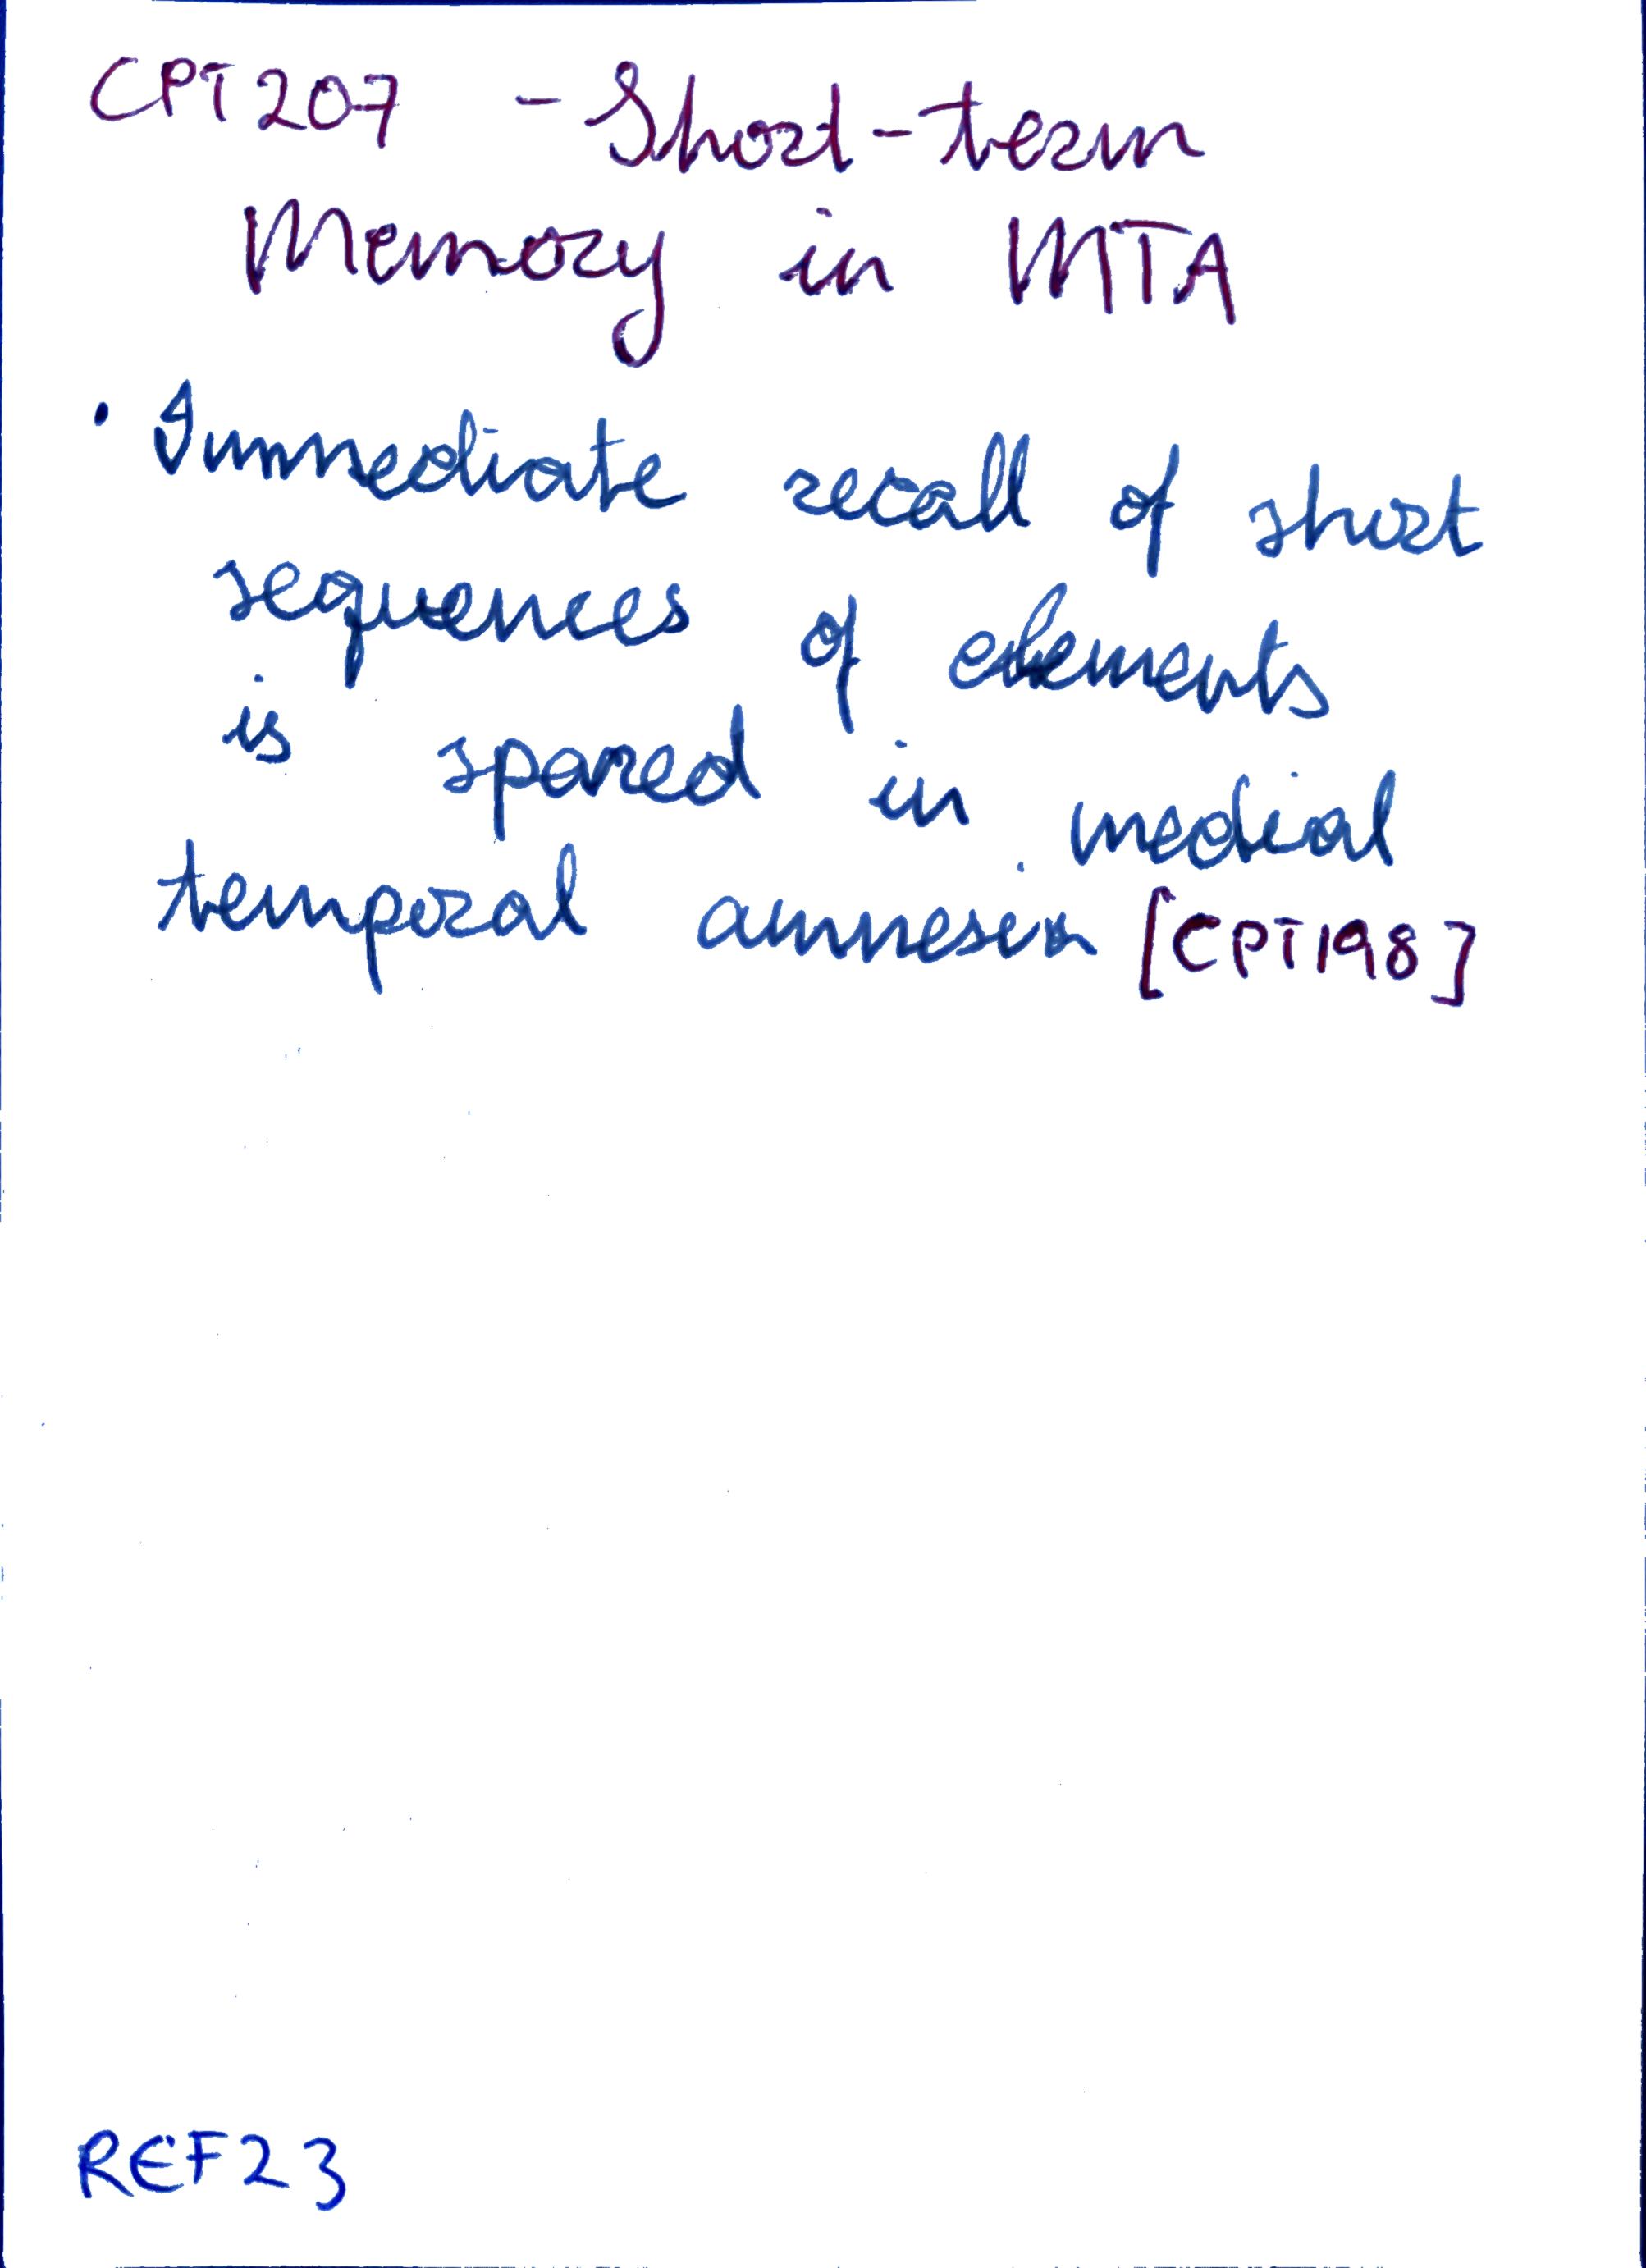 CPT207 - Short-term
Memory in MTA
• Immediate recall of short
sequences of elements
is spared in medial
temporal amnesia [CPT198]
REF23